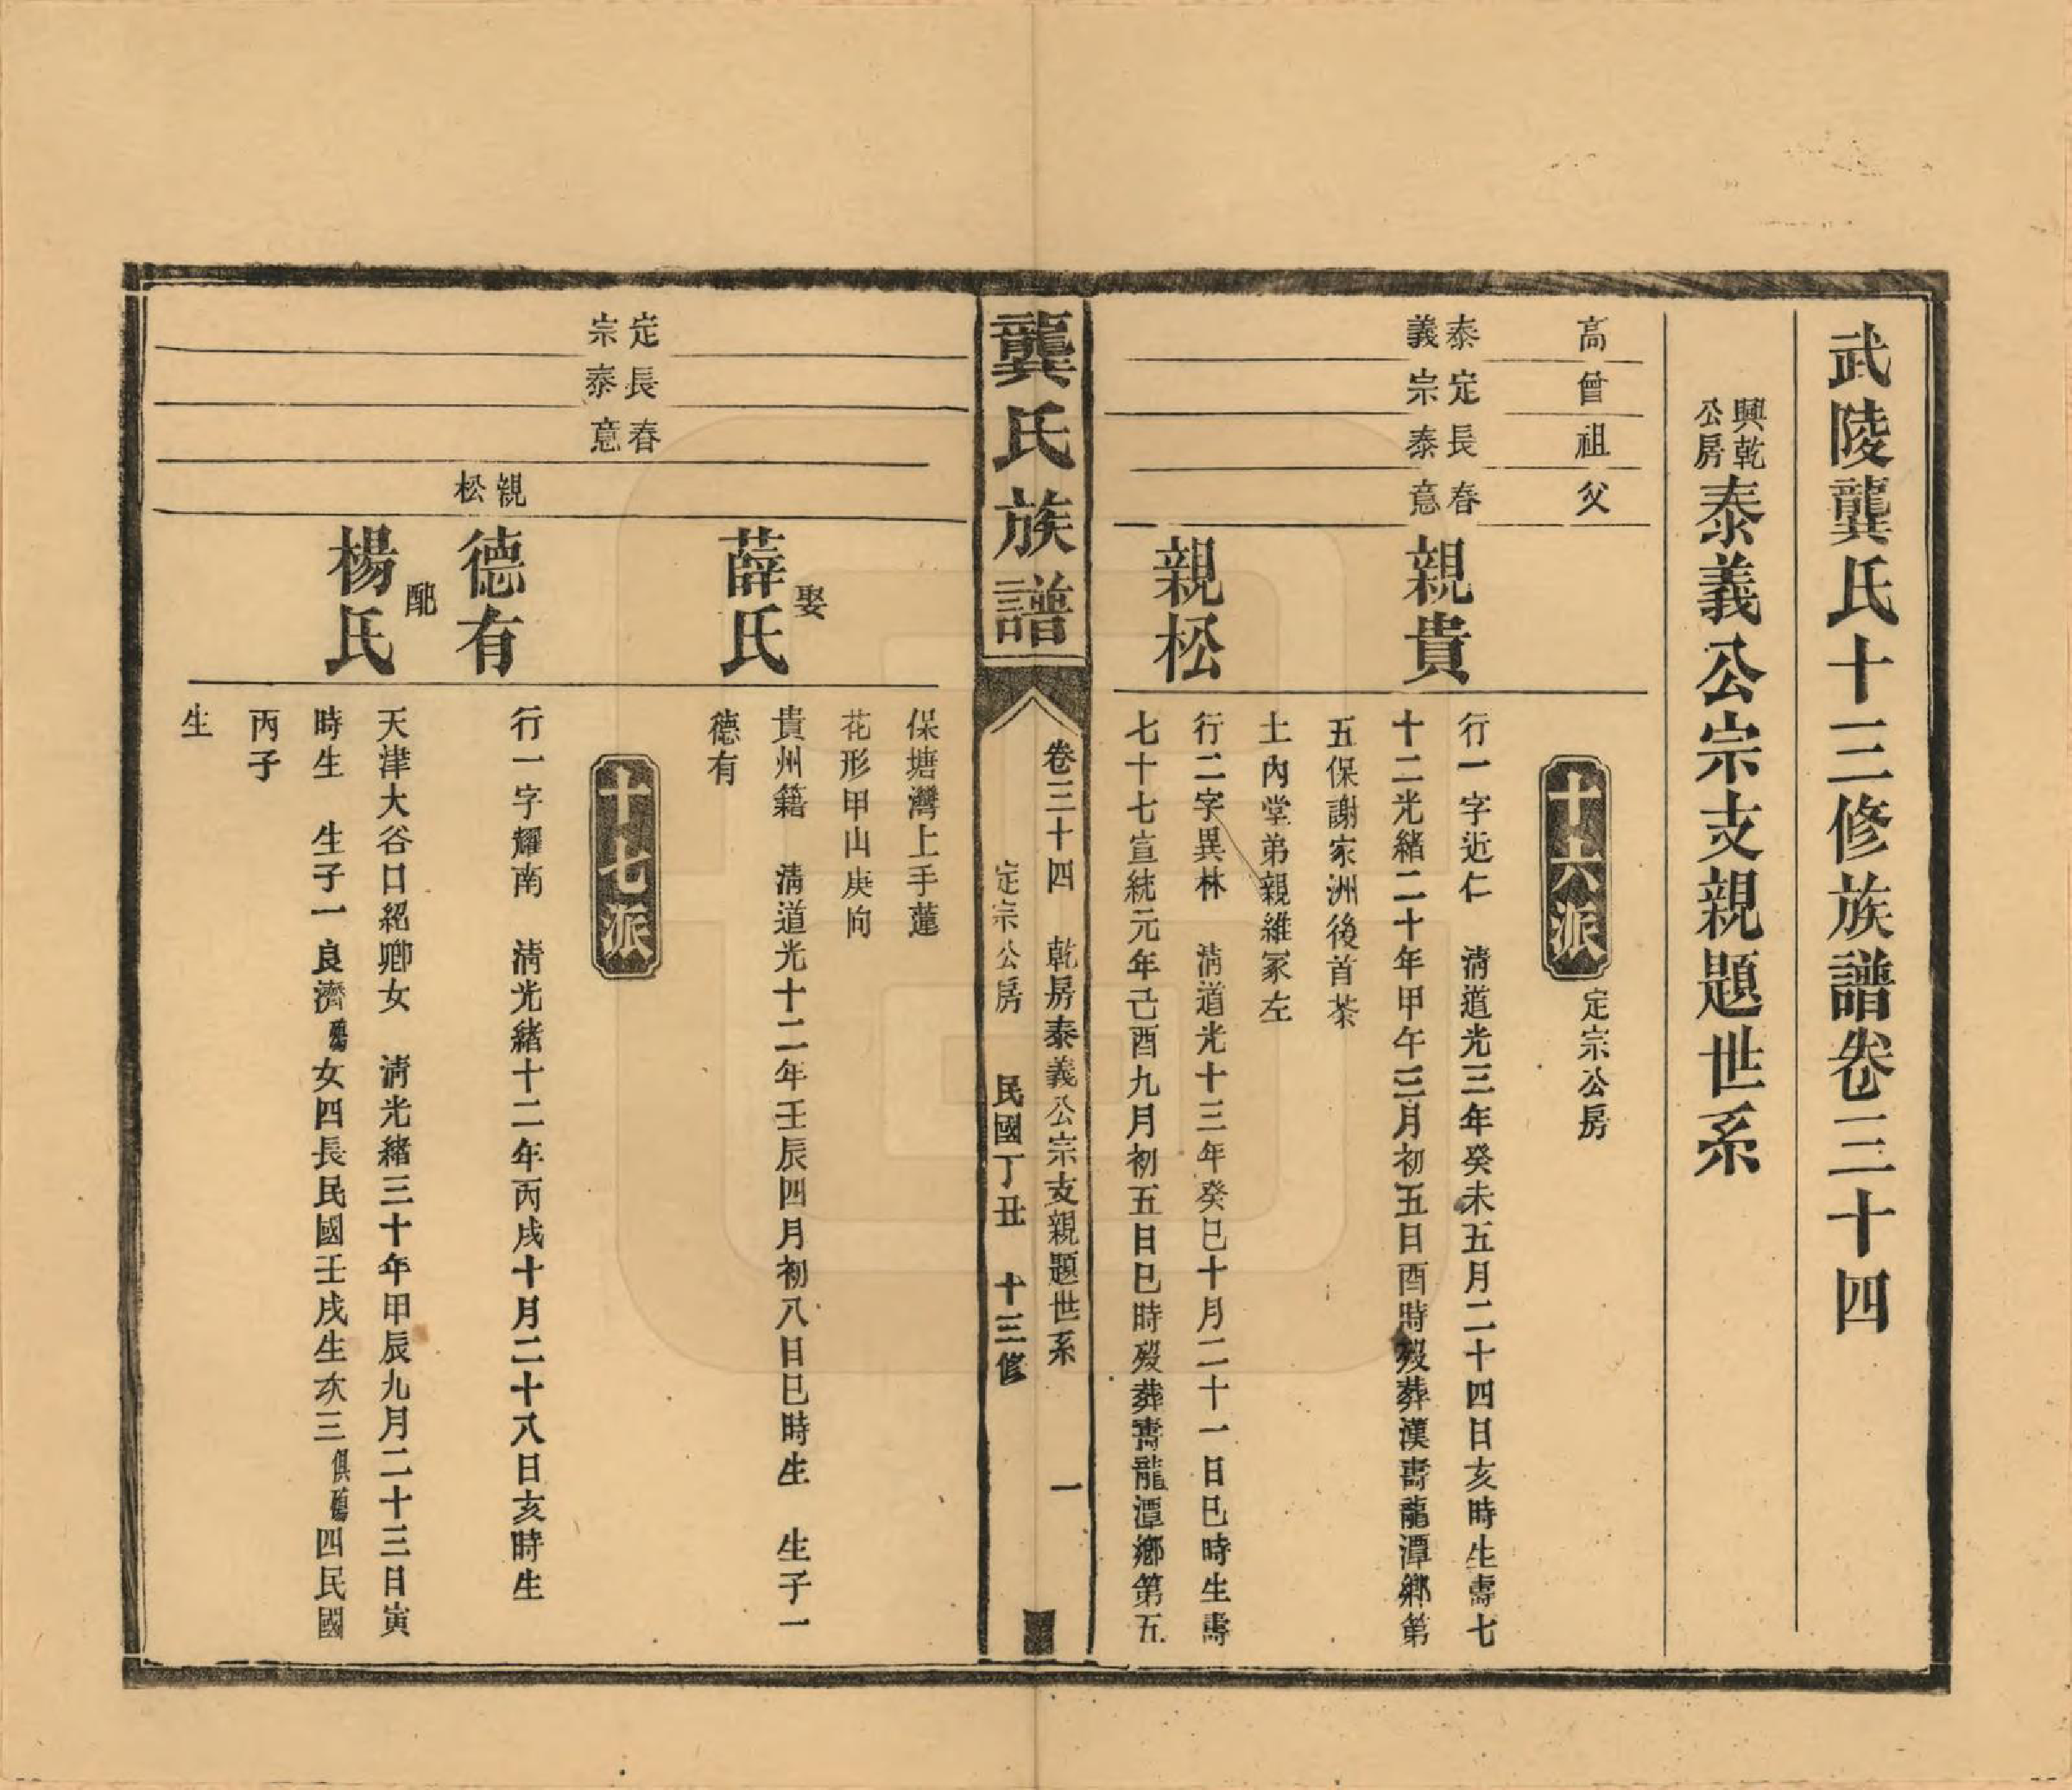 武陵龔氏十三修族譜卷三十四
興乾公房泰義公宗支親題世系
高
曾
祖
父
十六派 定宗公房
泰義
定宗
長泰
春意
親貴
行一字近仁 淸道光三年癸未五月二十四日亥時生壽七
十二光緒二十年甲午三月初五日酉時歿葬漢壽龍潭鄉第
五保謝家洲後首茶
土內堂弟親維冢左
親松
行二字異林 淸道光十三年癸巳十月二十一日巳時生壽
七十七宣統元年己酉九月初五日巳時歿葬壽龍潭鄉第五
龔氏族譜
卷三十四 乾房泰義公宗支親題世系 一
定宗公房 民國丁丑 十三修
保塘灣上手蓮
花形甲山庚向
娶
薛氏
貴州籍 淸道光十二年壬辰四月初八日巳時生 生子一
德有
十七派
定宗
長泰
春意
親松
德有
行一字耀南 淸光緒十二年丙戌十月二十八日亥時生
配
楊氏
天津大谷口紹卿女 淸光緒三十年甲辰九月二十三日寅
時生 生子一良濟 女四長民國壬戌生次三俱 四民國
丙子
生